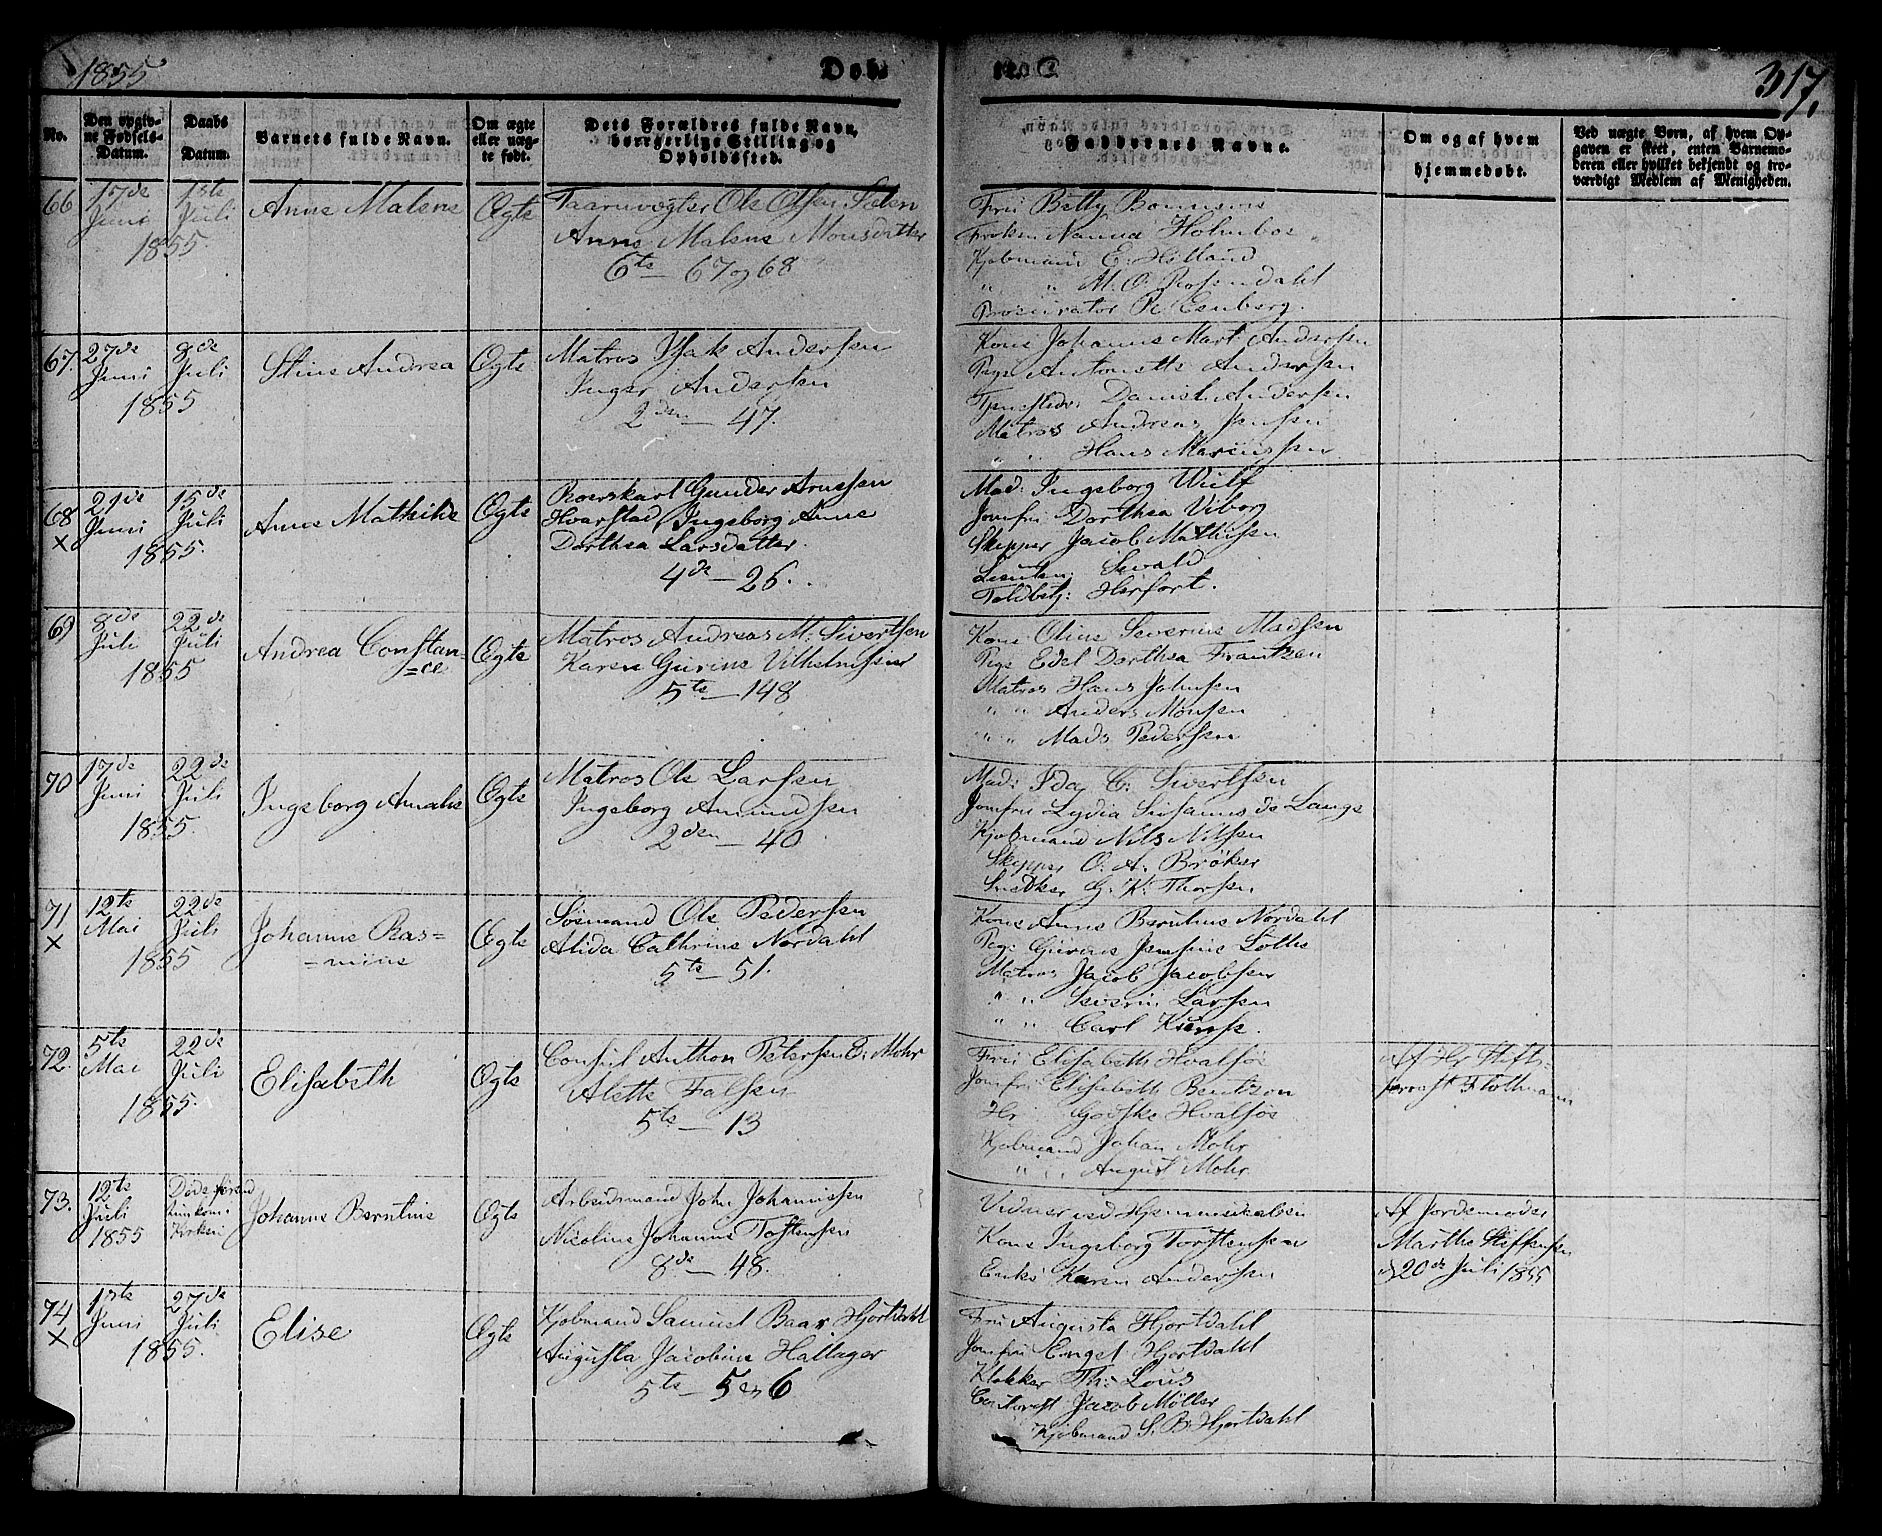 1855
Døbte
317.
No.
Den opgivne Fødsels-Datum.
Daabs Datum.
Barnets fulde Navn.
Om ægte eller uægte født.
Dets Forældres fulde Navn, borgerlige Stilling og Opholdssted.
Faddernes Navne.
Om og af hvem hjemmedøbt.
Ved uægte Børn, af hvem Opgaven er skeet, enten Barnemoderen eller hvilket bekjendt og troværdigt Medlem af Menigheden.
66
17de Juni 1ste Juli
1855
Anne Malene
Ægte
Taarnvægter Ole Olsen
Anne Malene Monsdatter
6te 67 og 68
Frü
Frøken Nanna Holmboe
Kjøbmand E: Holland
" " M. O. Rosendahl
Procurator
67.
27de Juni 8de Juli
1855
Stine Andrea
Ægte
Matros Isak Andersen
Inger Andersen
2den 47.
Kone Johanne Mart. Andersen
Pige Antonette Andersen
Daniel Andersen
Matros Andreas Jensen
" " Hans Mariüssen
68
x
21de Juni 15de Juli
1855.
Anne Mathilde
Ægte
Roerskarl Gunder Arnesen
Hvarstad, Ingeborg Anne
Dorthea Larsdatter.
4de 26.
Mad: Ingeborg Wulf
Jomfrü Dorthea Viborg
Skipper Jacob Mathisen
Lieuten: Sivald
Toldbetj: Herfort.
69
8de Juli 22de Juli
1855
Andrea Constan=
=ce
Ægte
Matros Andreas M. Sivertsen
Karen Gurine Vilhelmsen
5te 148
Kone Oline Severine Madsen
Pige Edel Dorthea Frantzen
Matros Hans Johnsen
" " Anders Monsen
" " Mads Pedersen
70
17de Juni 22de Juli
1855
Ingeborg Amalie
Ægte
Matros Ole Larsen
Ingeborg Amundsen
2den 40
Mad: Ida C: Sivertsen
Jomfru Lydia Susanne de Lange
Kjøbmand Nils Nilsen
Skipper O. A. Brøker
Snedker G. K. Thorsen
71
x
12te Mai 22de Juli
1855
Johanne Ras=
=mine
Ægte
Sømand Ole Pedersen
Alida Cathrine Nordahl
5te 51.
Kone Anne Berntine Nordahl
Pige Gurine Josefine Lothe
Matros Jacob Jacobsen
" " Severin Larsen
" " Carl
72.
5te Mai 22de Juli
1855.
Elisabeth
Ægte
Consul Anthon Petersen C: Mohr
Alette Falsen
5te 13
Frü Elisabeth Hvalsøe
Jomfrü Elisabeth Bentzon
Hr. Godske Hvalsøe
Kjøbmand Johan Mohr
" " August Mohr
Af Hr. Stifts-
provst Flottmann
73.
12te Juli
1855
Døde førend
Kirken
Johanne Berntine
Ægte
Arbeidsmand John Johannesen
Nicoline Johanne Torstensen
8de 48.
Vidner ved Hjemmedaaben
Kone Ingeborg Torstensen
Enke Karen Andersen
Af Jordemoder
Marthe Steffensen
d 20de Juli 1855
74
x
1ste Juni 27de Juli
1855.
Elise
Ægte
Kjøbmand Samuel Baar Hjortdahl
Augusta Jacobine Hallager
5te 5 og 6
Frü Augusta Hjortdahl
Jomfrü Engel Hjortdahl
Klokker Th: Lous
Jacob Møller
Kjøbmand S. B. Hjortdahl